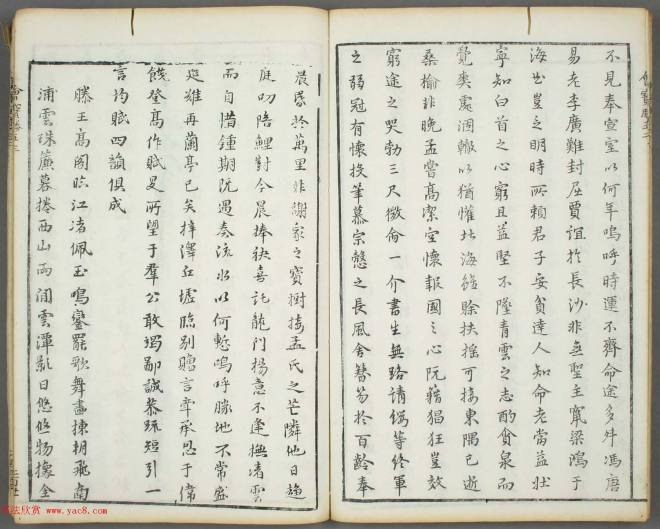 不見奉宣室以何年嗚呼時運不齊命途多舛馮唐
易老李廣難封屈賈誼於長沙非無聖主竄梁鴻于
海曲豈乏明時所賴君子安貧達人知命老當益壯
寧知白首之心窮且益堅不墜青雲之志酌貪泉而
覺爽處涸轍以猶懽北海雖賒扶搖可接東隅已逝
桑榆非晚孟嘗高潔空懷報國之心阮籍猖狂豈效
窮途之哭勃三尺微命一介書生無路請纓等終軍
之弱冠有懷投筆慕宗慤之長風舍簪笏於百齡奉
晨昏於萬里非謝家之寶樹接孟氏之芳隣他日趨
庭叨陪鯉對今晨捧袂喜託龍門楊意不逢撫凌雲
而自惜鍾期既遇奏流水以何慙嗚呼勝地不常盛
筵難再蘭亭已矣梓澤丘墟臨別贈言幸承恩于偉
餞登高作賦是所望于羣公敢竭鄙誠恭疏短引一
言均賦四韻俱成
滕王高閣臨江渚佩玉鳴鑾罷歌舞畫棟朝飛南
浦雲珠簾暮捲西山雨閒雲潭影日悠悠物
www.yac8.com